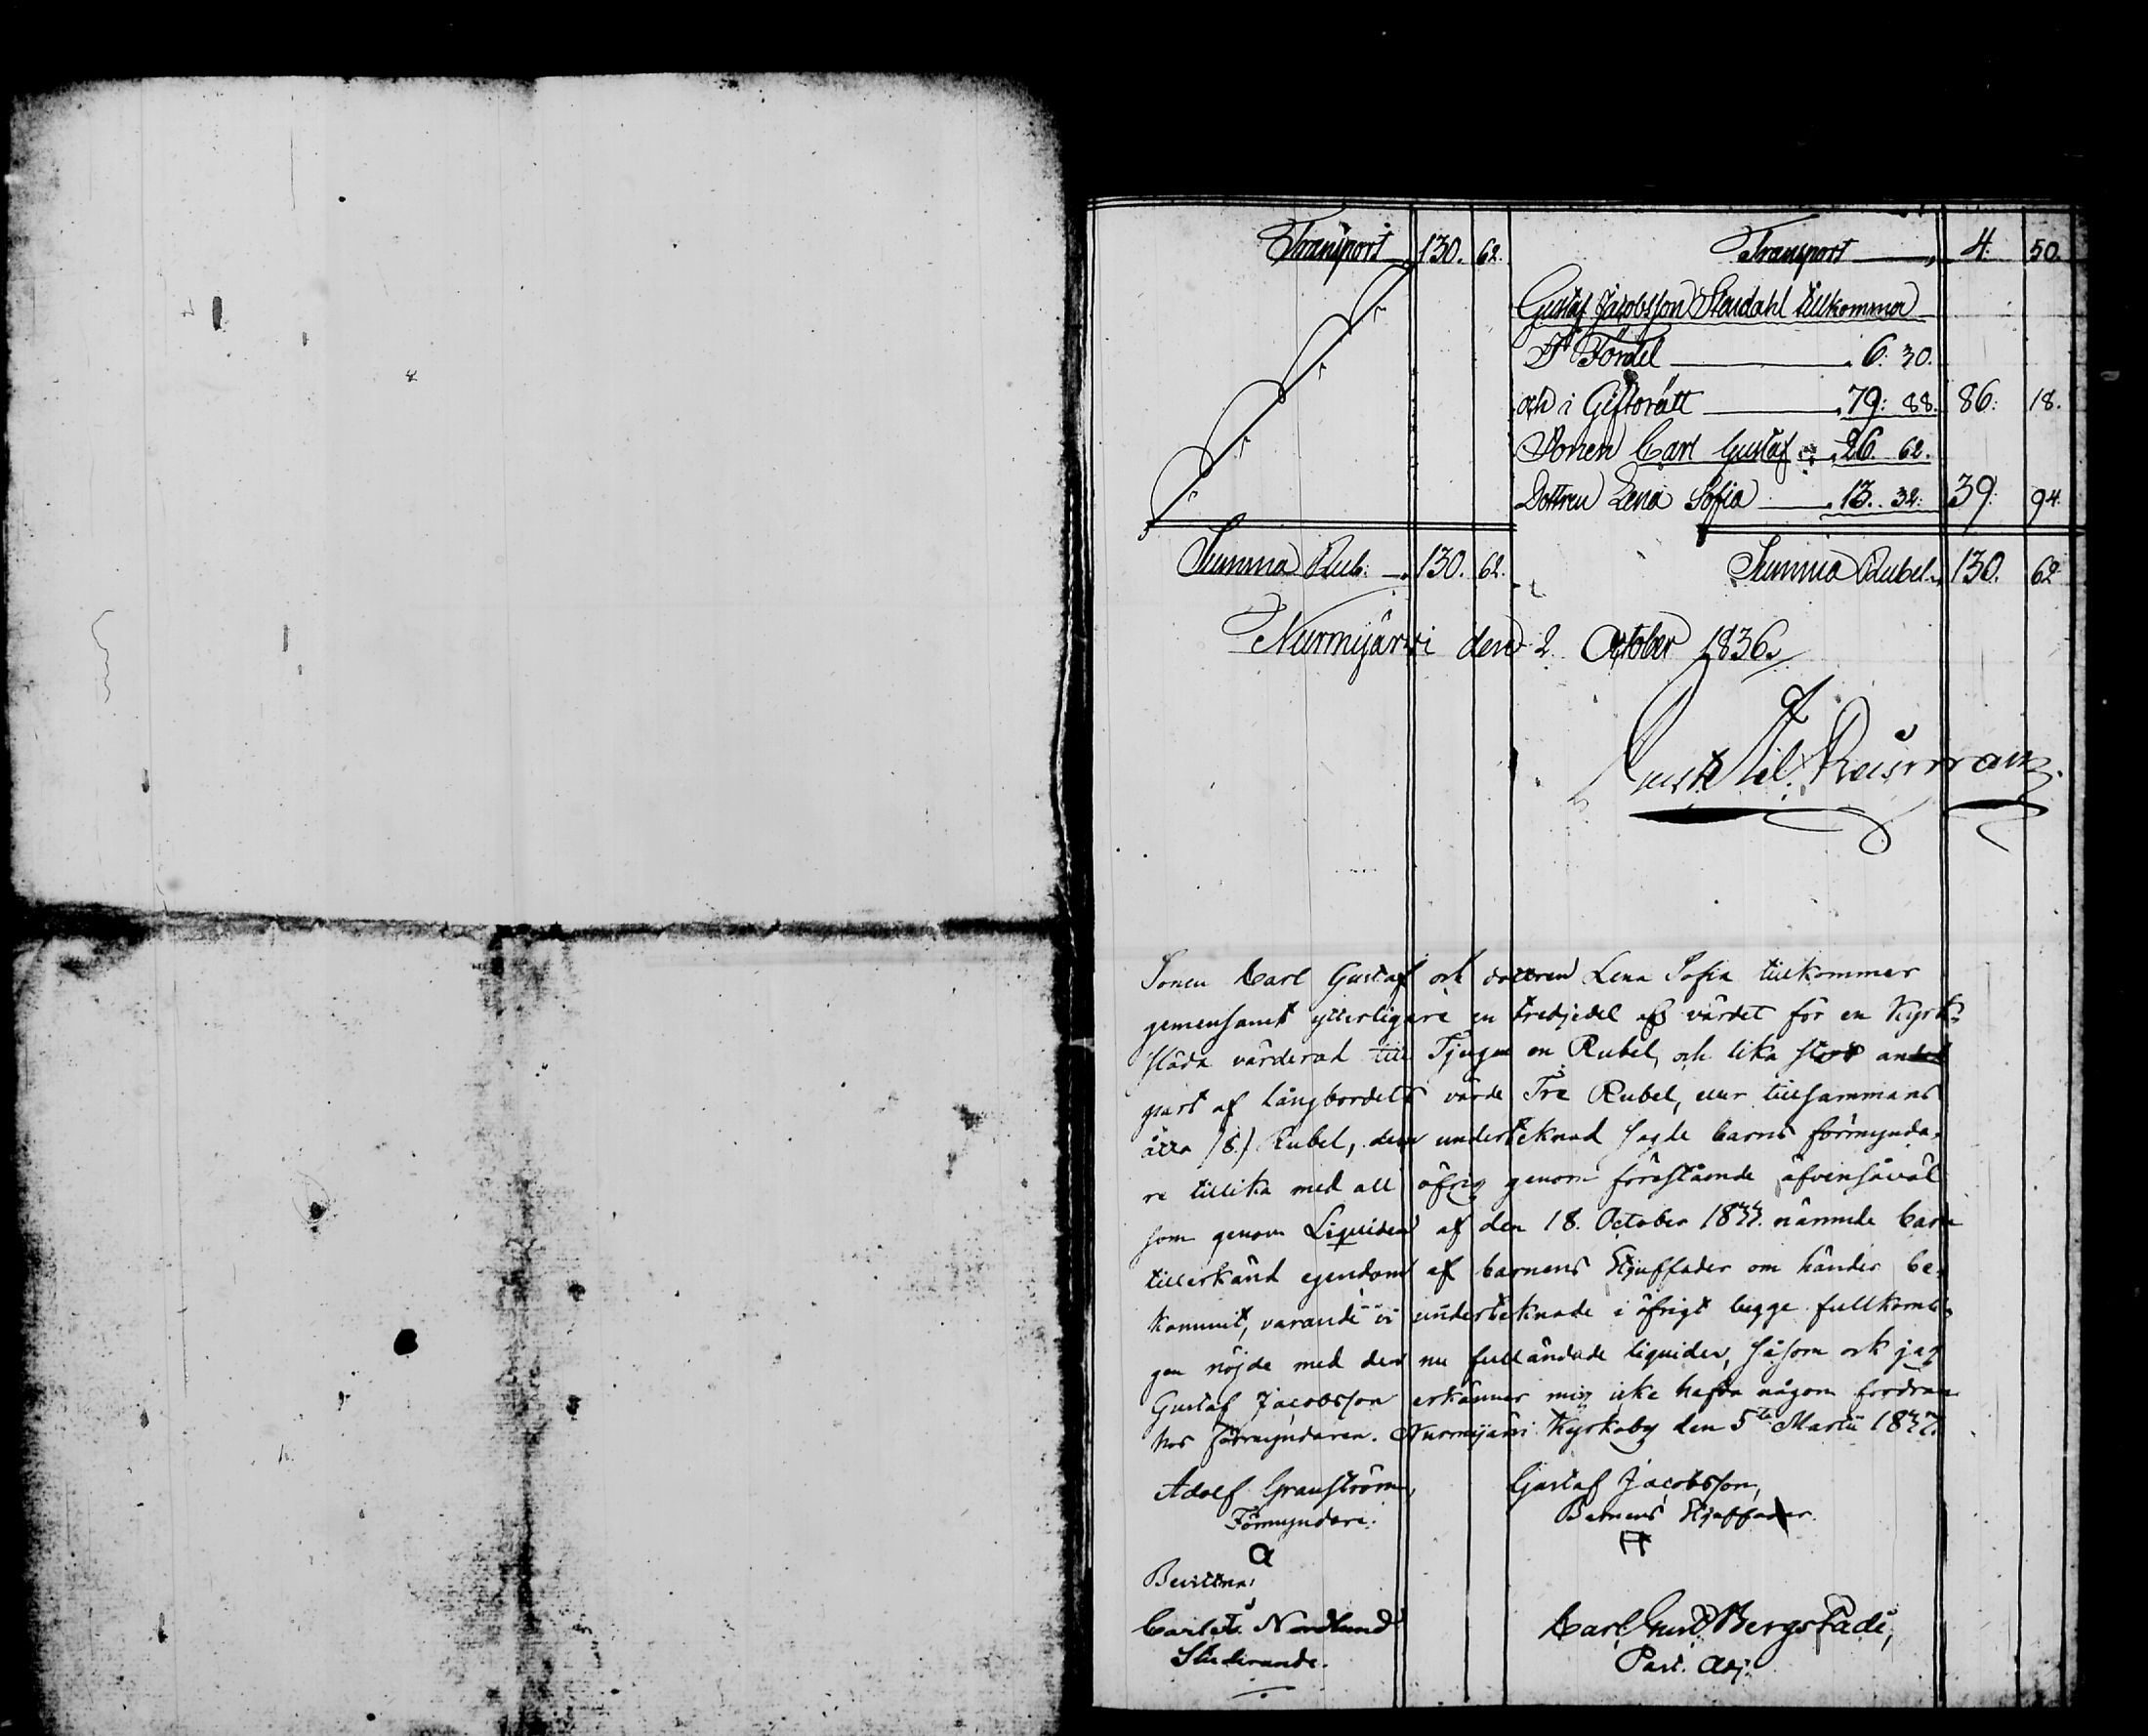 Transport 130. 62.
Summa Rub: 130. 62.
Transport 4: 50.
Gustaf Jacobsson Stardahl tillkomma
I Fördel 6: 30.
och i Giftorätt 79: 88. 86: 18.
Sonen Carl Gustaf 26. 62.
Dottren Lena Sofia 13. 32: 39: 94.
Summa Rubel 130. 62
Nurmijärvi den 2 October 1836.
Sonen Carl Gustaf och dottren Lena Sofia tillkommer
gemensamt ytterligare en tredjedel af värdet för en Kyrk-
släda värderad till Tjugu en Rubel, och lika stor
part af Långbordets värde Tre Rubel, eller tillsammans
åtta (8.) Rubel, dem undertecknad sagde barns förmynda-
re tillika med all öfrig genom förestående äfvensåväl
som genom Liquiden af den 18. October 1833. nämnde barn
tillerkänd egendom af barnens Stjuffader om händer be-
kommit, varande vi undertecknade i öfrigt begge fullkomli-
gen nöjde med den nu fulländade liquiden, såsom ock jag
Gustaf Jacobsson erkänner mig icke hafva någon fordran
hos Förmyndaren. Nurmijärvi Kyrkoby den 5te Martii 1837.
Adolf Granström, Gustaf Jacobsson,
Förmyndare. Barnens Stjuffader.
Bevittna:
Nordlund Carl Bergstadi,
Studerande. Past. Adj.